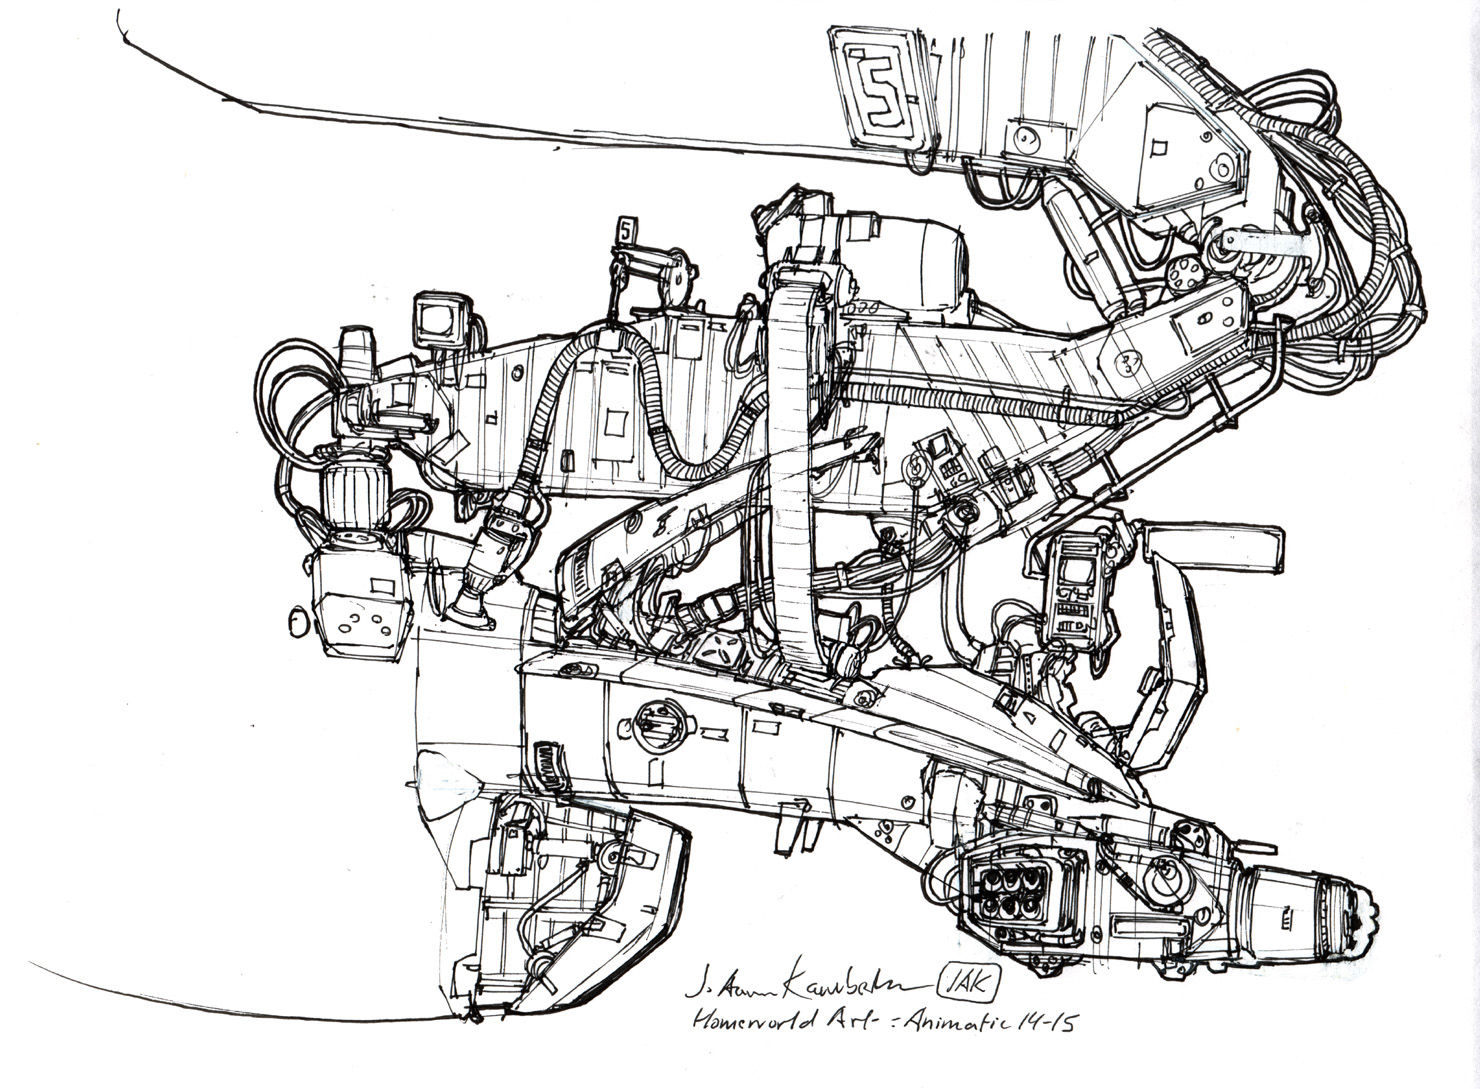 5
5
J. Aaron Kambeitz JAK
Homeworld Art - : Animatic 14-15